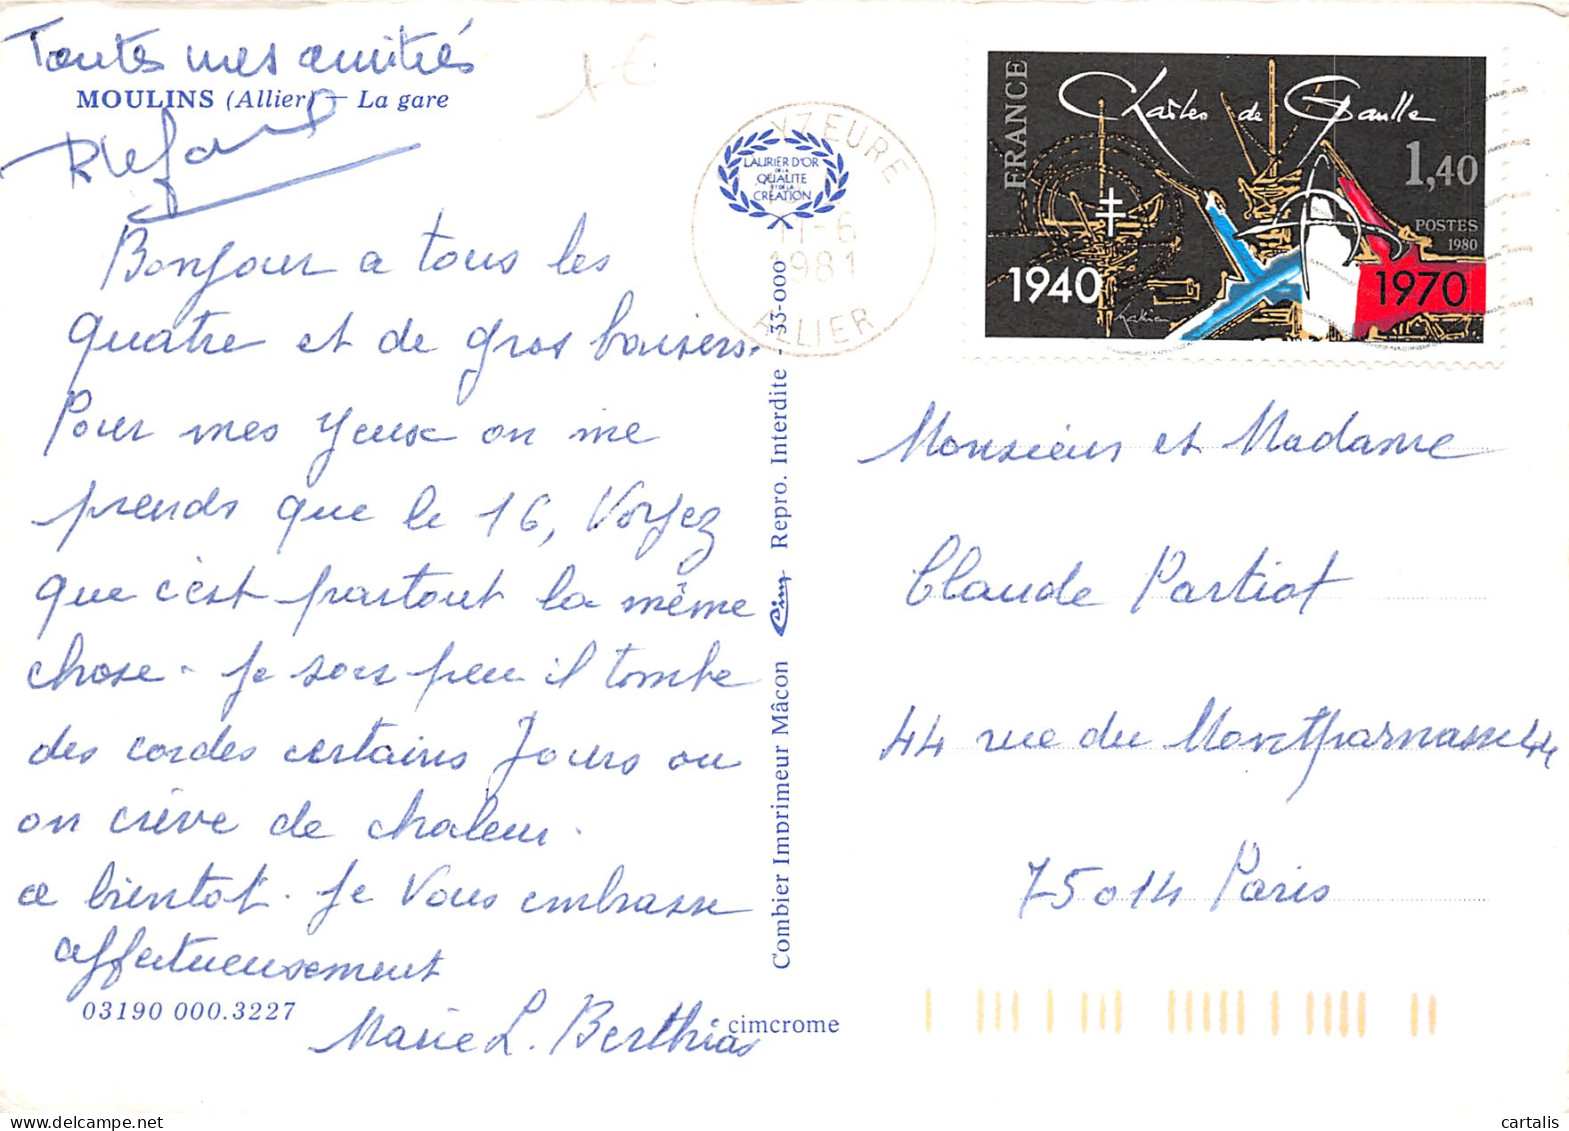 Toutes mes amitiés
MOULINS (Allier) – La gare
1€
Bonjour a tous les
quatre et de gros baisers.
Pour mes yeux on me
prends que le 16, Voyez
que c'est partout la même
chose - je sors peu il tombe
des cordes certains jours ou
on crève de chaleur.
a bientot. Je vous embrasse
affectueusement
Marie L. Berthias
03190 000.3227
cimcrome
Combier Imprimeur Mâcon Cim Repro. Interdite - 33-000
LAURIER D'OR
DE LA
QUALITE
ET DE LA
CREATION
YZEURE
11-6
1981
ALLIER
FRANCE
Charles de Gaulle
1,40
POSTES
1980
1940
1970
Monsieur et Madame
Claude Partiot
44 rue du Montparnasse 44
75014 Paris
cartalis